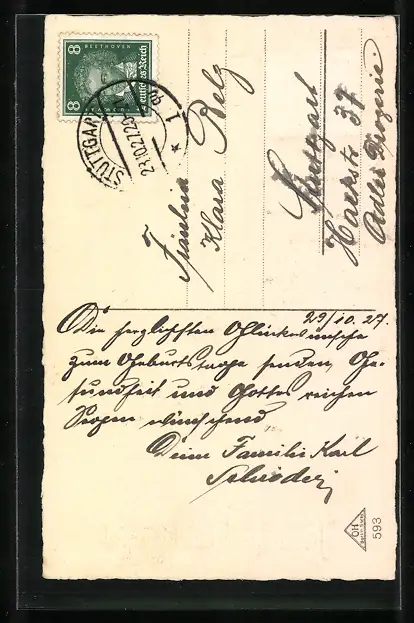 8 BEETHOVEN 8
Deutsches Reich
STUTTGART
23.10.27.20
1
Fräulein
Klara Belz
Stuttgart
Hackstr. 37
Adler Drogerie.
23/10.27.
Die herzlichsten Glückwünsche
zum Geburtstage senden, Ge-
sundheit und Gottes reichen
Segen wünschend
Deine Familie Karl
Schneder
OH
593